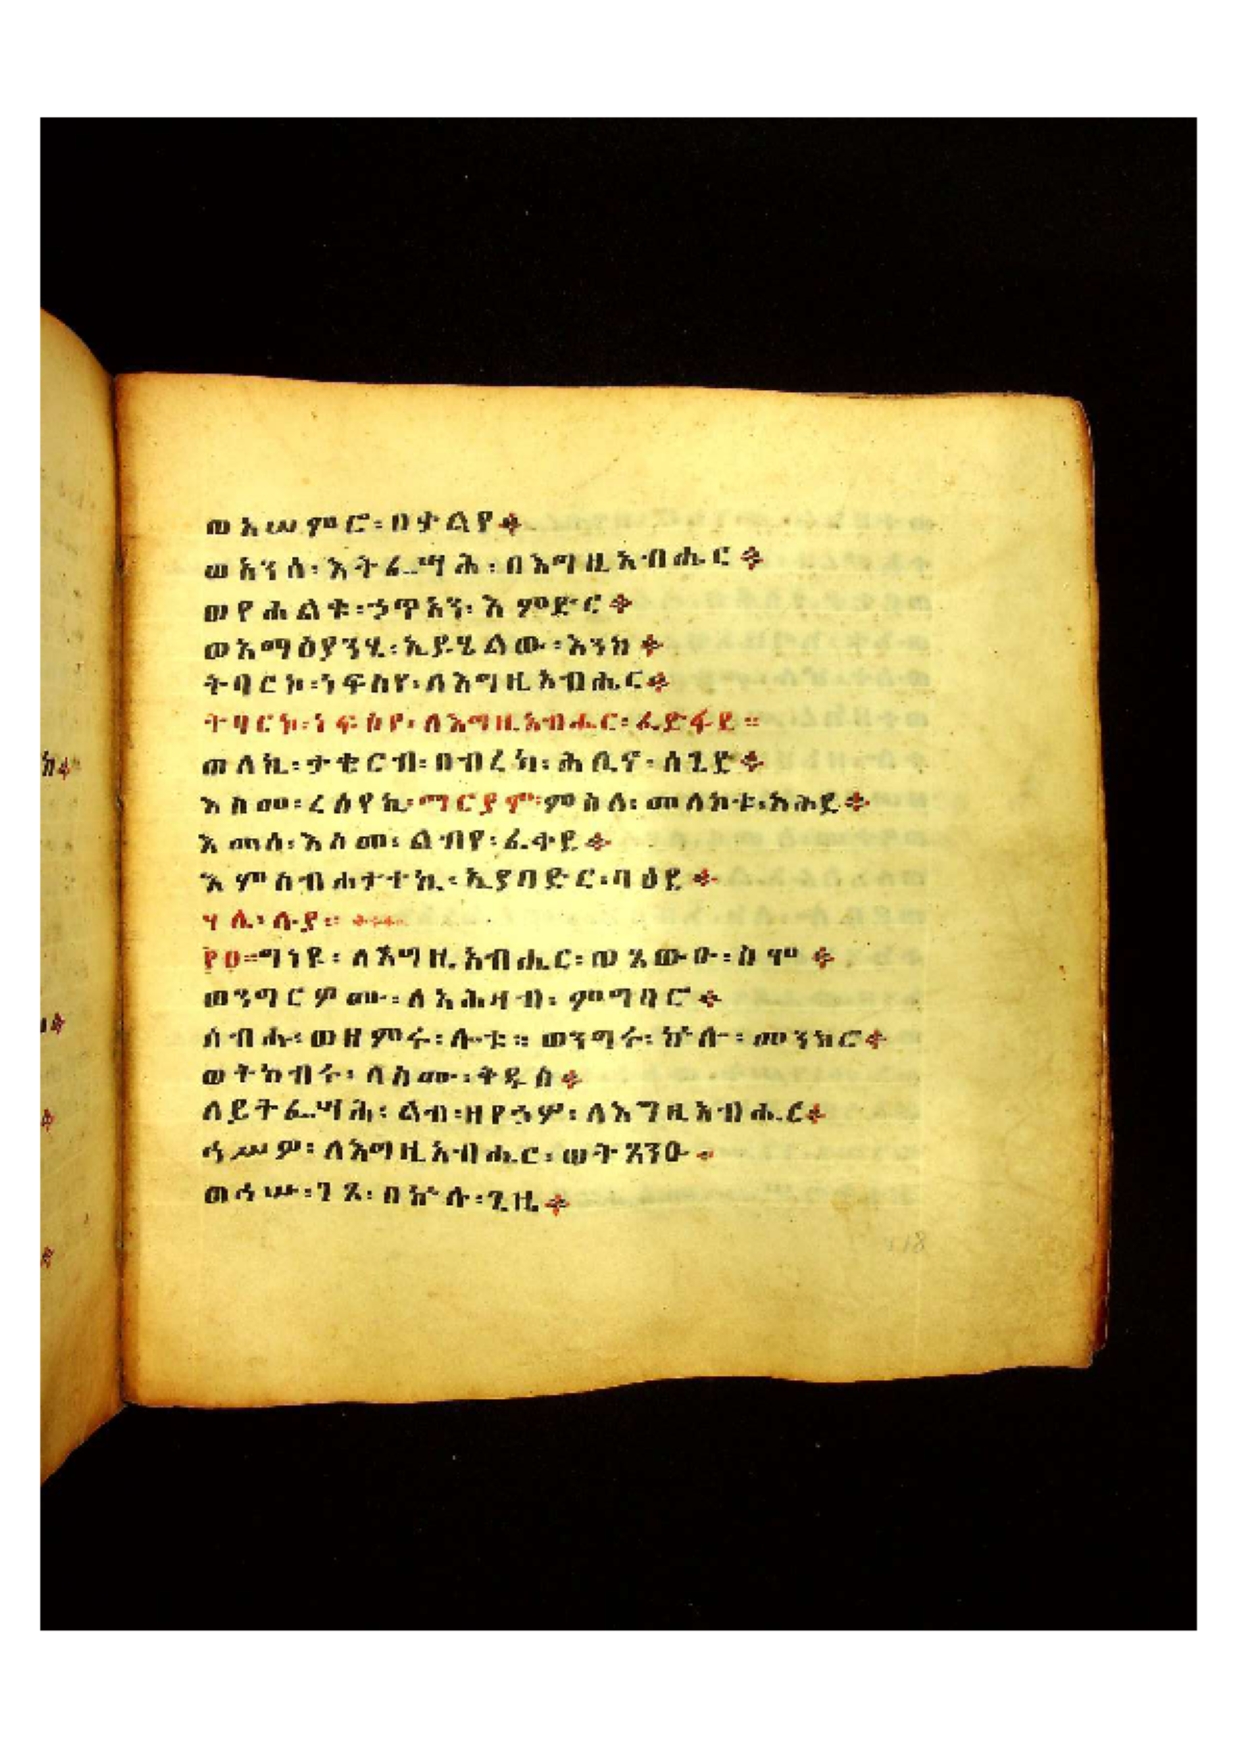 ወአሠምሮ፡በቃልየ፨
ወአንሰ፡እትፌሣሕ፡በእግዚአብሔር፨
ወየሐልቁ፡ኃጥአን፡እምድር፨
ወአማፅያንሂ፡ኢይሄልው፡እንከ፨
ትባርኮ፡ነፍስየ፡ለእግዚአብሔር፨
ትባርኮ፡ነፍስየ፡ለእግዚአብሔር፡ፈድፋደ።
ወለኪ፡ታቂርብ፡በብረኪ፡ሕሊና፡ሰጊድ፨
እስመ፡ረሰየኪ፡ማርያም፡ምስለ፡መለኮቱ፡አሐደ፨
እመሰ፡እስመ፡ልብየ፡ፈቀደ፨
እምስብሐታተኪ፡ኢያበድር፡ባዕደ፨
ሃሌ፡ሉያ።
፻፬።ግነዩ፡ለእግዚአብሔር፡ወጸውዑ፡ስሞ፨
ወንግርዎሙ፡ለአሕዛብ፡ምግባሮ፨
ሰብሑ፡ወዘምሩ፡ሎቱ።ወንግሩ፡ኵሎ፡መንክሮ፨
ወትከብሩ፡ለስሙ፡ቅዱስ፨
ለይትፌሣሕ፡ልብ፡ዘየኀሦ፡ለእግዚአብሔር፨
ኅሥዎ፡ለእግዚአብሔር፡ወትጸንዑ፨
ወኅሡ፡ገጾ፡በኵሉ፡ጊዜ፨